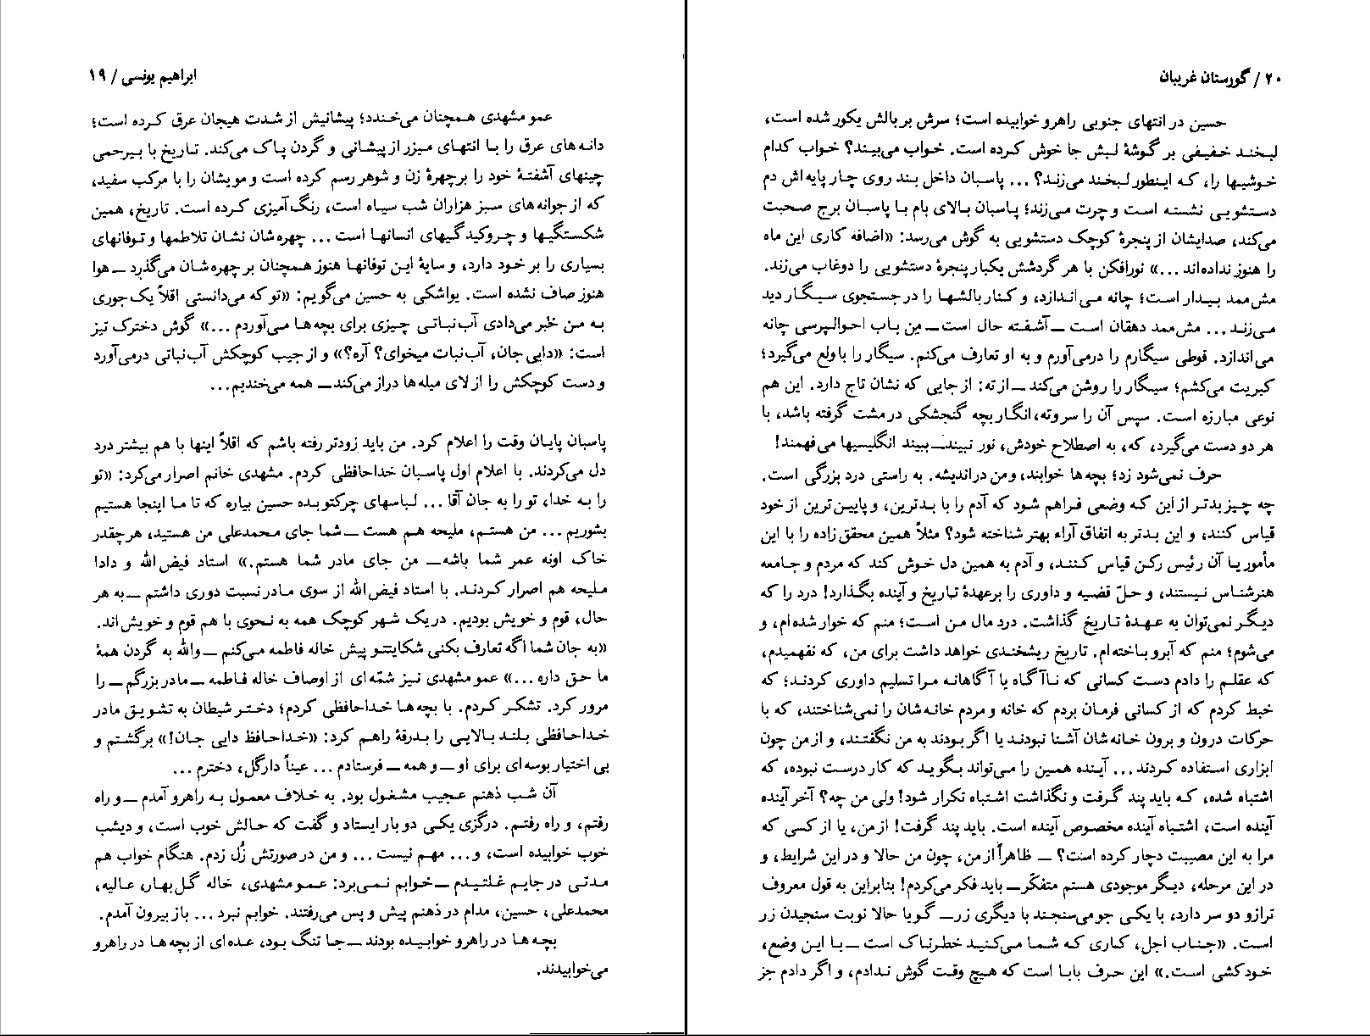 ابراهیم یونسی / ۱۹
عمو مشهدی همچنان می‌خندد؛ پیشانیش از شدت هیجان عرق کرده است؛
دانه‌های عرق را با انتهای میزر از پیشانی و گردن پاک می‌کند. تاریخ با بیرحمی
چینهای آشفتهٔ خود را بر چهرهٔ زن و شوهر رسم کرده است و مویشان را با مرکب سفید،
که از جوانه‌های سبز هزاران شب سیاه است، رنگ‌آمیزی کرده است. تاریخ، همین
شکستگیها و چروکیدگیهای انسانها است ... چهره‌شان نشان تلاطمها و توفانهای
بسیاری را بر خود دارد، و سایهٔ این توفانها هنوز همچنان بر چهره‌شان می‌گذرد ــ هوا
هنوز صاف نشده است. یواشکی به حسین می‌گویم: «تو که می‌دانستی اقلاً یک جوری
به من خبر می‌دادی آب‌نباتی چیزی برای بچه‌ها می‌آوردم ...» گوش دخترک تیز
است: «دایی جان، آب‌نبات میخوای؟ آره؟» و از جیب کوچکش آب‌نباتی درمی‌آورد
و دست کوچکش را از لای میله‌ها دراز می‌کند ــ همه می‌خندیم...
پاسبان پایان وقت را اعلام کرد. من باید زودتر رفته باشم که اقلاً اینها با هم بیشتر درد
دل می‌کردند. با اعلام اول پاسبان خداحافظی کردم. مشهدی خانم اصرار می‌کرد: «تو
را به خدا، تو را به جان آقا ... لباسهای چرکتو بده حسین بیاره که تا ما اینجا هستیم
بشوریم ... من هستم، ملیحه هم هست ــ شما جای محمدعلی من هستید، هر چقدر
خاک اونه عمر شما باشه ــ من جای مادر شما هستم.» استاد فیض الله و دادا
ملیحه هم اصرار کردند. با استاد فیض الله از سوی مادر نسبت دوری داشتم ــ به هر
حال، قوم و خویش بودیم. در یک شهر کوچک همه به نحوی با هم قوم و خویش‌اند.
«به جان شما اگه تعارف بکنی شکایتتو پیش خاله فاطمه می‌کنم ــ والله به گردن همهٔ
ما حق داره ...» عمو مشهدی نیز شمّه‌ای از اوصاف خاله فاطمه ــ مادر بزرگم ــ را
مرور کرد. تشکر کردم. با بچه‌ها خداحافظی کردم؛ دختر شیطان به تشویق مادر
خداحافظی بلند بالایی را بدرقهٔ راهم کرد: «خداحافظ دایی جان!» برگشتم و
بی اختیار بوسه‌ای برای او ــ و همه ــ فرستادم ... عیناً دارگل، دخترم ...
آن شب ذهنم عجیب مشغول بود. به خلاف معمول به راهرو آمدم ــ و راه
رفتم، و راه رفتم. درگزی یکی دو بار ایستاد و گفت که حالش خوب است، و دیشب
خوب خوابیده است، و... مهم نیست ... و من در صورتش زُل زدم. هنگام خواب هم
مدتی در جایم غلتیدم ــ خوابم نمی‌برد: عمو مشهدی، خاله گل‌بهار، عالیه،
محمدعلی، حسین، مدام در ذهنم پیش و پس می‌رفتند. خوابم نبرد ... باز بیرون آمدم.
بچه‌ها در راهرو خوابیده بودند ــ جا تنگ بود، عده‌ای از بچه‌ها در راهرو
می‌خوابیدند.
۲۰ / گورستان غریبان
حسین در انتهای جنوبی راهرو خوابیده است؛ سرش بر بالش یکور شده است،
لبخند خفیفی بر گوشهٔ لبش جا خوش کرده است. خواب می‌بیند؟ خواب کدام
خوشیها را، که اینطور لبخند می‌زند؟ ... پاسبان داخل بند روی چارپایه‌اش دم
دستشویی نشسته است و چرت می‌زند؛ پاسبان بالای بام با پاسبان برج صحبت
می‌کند، صدایشان از پنجرهٔ کوچک دستشویی به گوش می‌رسد: «اضافه کاری این ماه
را هنوز نداده‌اند ...» نورافکن با هر گردشش یکبار پنجرهٔ دستشویی را دوغاب می‌زند.
مش‌ممد بیدار است؛ چانه می‌اندازد، و کنار بالشها را در جستجوی سیگار دید
می‌زند ... مش‌ممد دهقان است ــ آشفته حال است ــ مِن باب احوالپرسی چانه
می‌اندازد. قوطی سیگارم را درمی‌آورم و به او تعارف می‌کنم. سیگار را با ولع می‌گیرد؛
کبریت می‌کشم؛ سیگار را روشن می‌کند ــ از ته: از جایی که نشان تاج دارد. این هم
نوعی مبارزه است. سپس آن را سر و ته، انگار بچه گنجشکی در مشت گرفته باشد، با
هر دو دست می‌گیرد، که، به اصطلاح خودش، نور نبیند ــ ببیند انگلیسیها می‌فهمند!
حرف نمی‌شود زد؛ بچه‌ها خوابند، و من در اندیشه. به راستی درد بزرگی است.
چه چیز بدتر از این که وضعی فراهم شود که آدم را با بدترین، و پایین‌ترین از خود
قیاس کنند، و این بدتر به اتفاق آراء بهتر شناخته شود؟ مثلاً همین محقق‌زاده را با این
مأمور یا آن رئیس رکن قیاس کنند، و آدم به همین دل خوش کند که مردم و جامعه
هنرشناس نیستند، و حلّ قضیه و داوری را برعهدهٔ تاریخ و آینده بگذارد! درد را که
دیگر نمی‌توان به عهدهٔ تاریخ گذاشت. درد مال من است؛ منم که خوار شده‌ام، و
می‌شوم؛ منم که آبرو باخته‌ام. تاریخ ریشخندی خواهد داشت برای من، که نفهمیدم،
که عقلم را دادم دست کسانی که ناآگاه یا آگاهانه مرا تسلیم داوری کردند؛ که
خبط کردم که از کسانی فرمان بردم که خانه و مردم خانه‌شان را نمی‌شناختند، که با
حرکات درون و برون خانه‌شان آشنا نبودند یا اگر بودند به من نگفتند، و از من چون
ابزاری استفاده کردند ... آینده همین را می‌تواند بگوید که کار درست نبوده، که
اشتباه شده، که باید پند گرفت و نگذاشت اشتباه تکرار شود! ولی من چه؟ آخر آینده
آینده است، اشتباه آینده مخصوص آینده است. باید پند گرفت! از من، یا از کسی که
مرا به این مصیبت دچار کرده است؟ ــ ظاهراً از من، چون من حالا و در این شرایط، و
در این مرحله، دیگر موجودی هستم متفکّر ــ باید فکر می‌کردم! بنابراین به قول معروف
ترازو دو سر دارد، با یکی جو می‌سنجند با دیگری زر ــ گویا حالا نوبت سنجیدن زر
است. «جناب اجل، کاری که شما می‌کنید خطرناک است ــ با این وضع،
خودکشی است.» این حرف بابا است که هیچ وقت گوش ندادم، و اگر دادم جز